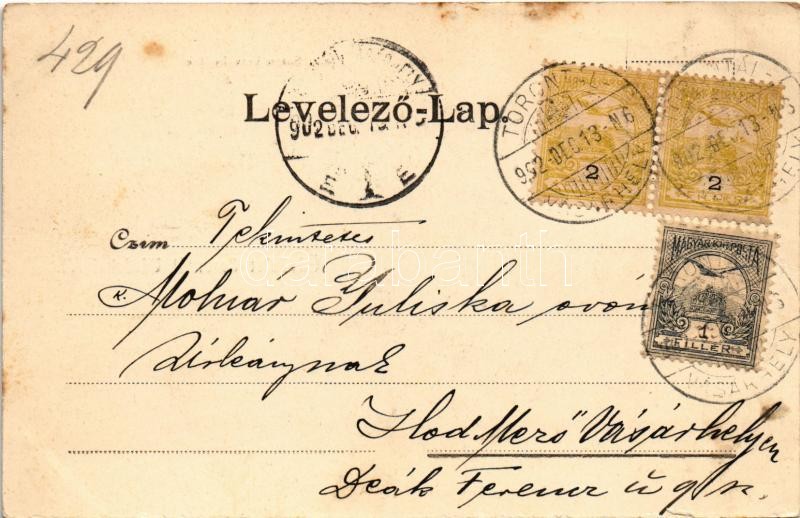 429
Levelező-Lap.
TORONTÁL-
902 DEC. 13 - N 6
VÁSÁRHELY
2
2
MAGYAR KIR. POSTA
1
FILLÉR
VÁSÁRHELY
Czim Tekintetes
K. Molnár Juliska óvónő
Úrleánynak
Hód Mező Vásárhelyen
Deák Ferenc ú 9 sz.
darabanth